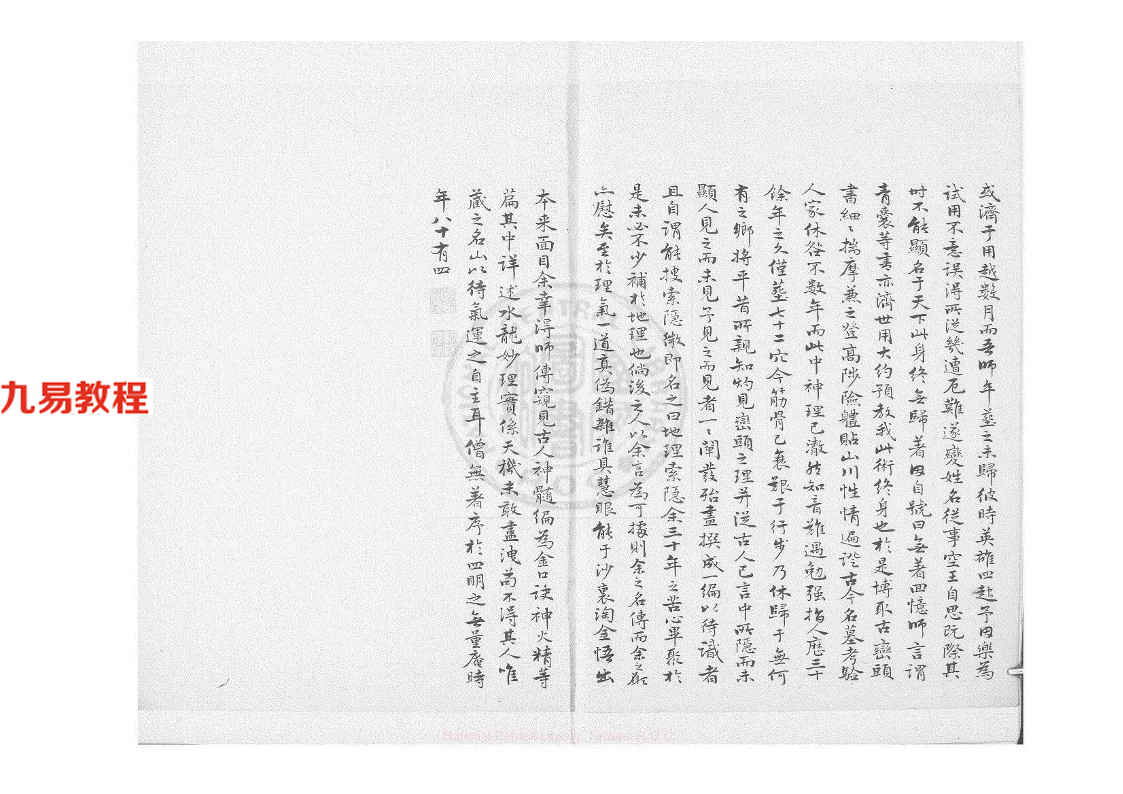 或濟于用越數月而吾師年塟之未歸彼時英雄四起予因樂為
試用不意誤得所從幾遭厄難遂變姓名從事空王自思既際其
时不能顯名于天下此身終無歸著因自號曰無著回憶師言謂
青囊等書亦濟世用大約預教我此術終身也於是博取古巒頭
書細〻揣摩兼之登高陟險體貼山川性情遍證古今名墓考驗
人家休咎不数年而此中神理已澈然知音難遇勉强指人歷三十
餘年之久僅塟七十二穴今筋骨已衰艱于行步乃休歸于無何
有之鄉將平昔所親知灼見巒頭之理并從古人已言中所隱而未
顯人見之而未見予見之而見者一〻闡發殆盡撰成一編以待識者
且自謂能搜索隱微即名之曰地理索隱余三十年之苦心畢聚於
是未必不少補於地理也倘後之人以余言為可據則余之名傳而余之
亦慰矣至於理氣一道真偽錯雜誰具慧眼能于沙裏淘金悟出
本来面目余幸得師傳窺見古人神髓編為金口訣神火精等
篇其中详述水龍妙理實係天機未敢盡洩苟不得其人唯
藏之名山以待氣運之自主耳僧無著序於四明之無量菴時
年八十有四
九易教程